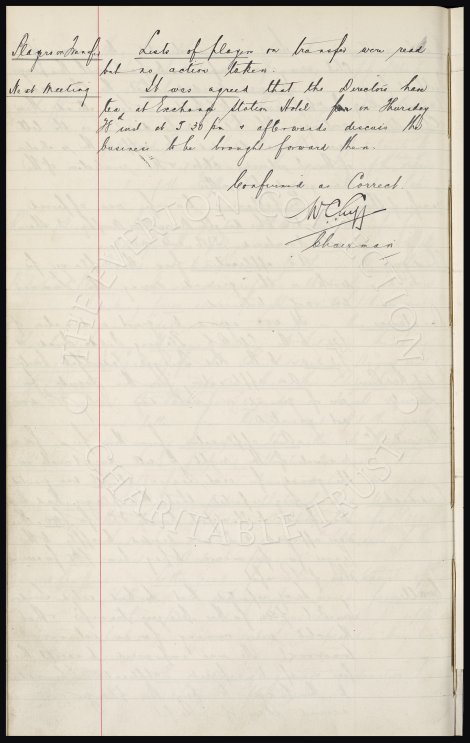 Players on Transfer
Lists of players on transfer were read
but no action taken.
Next Meeting
It was agreed that the Directors have
tea at Exchange Station Hotel on Thursday
inst at 5 30 pm & afterwards discuss the
business to be brought forward then.
Confirmed as Correct.
W C Cuff
Chairman
THE EVERTON COLLECTION
CHARITABLE TRUST